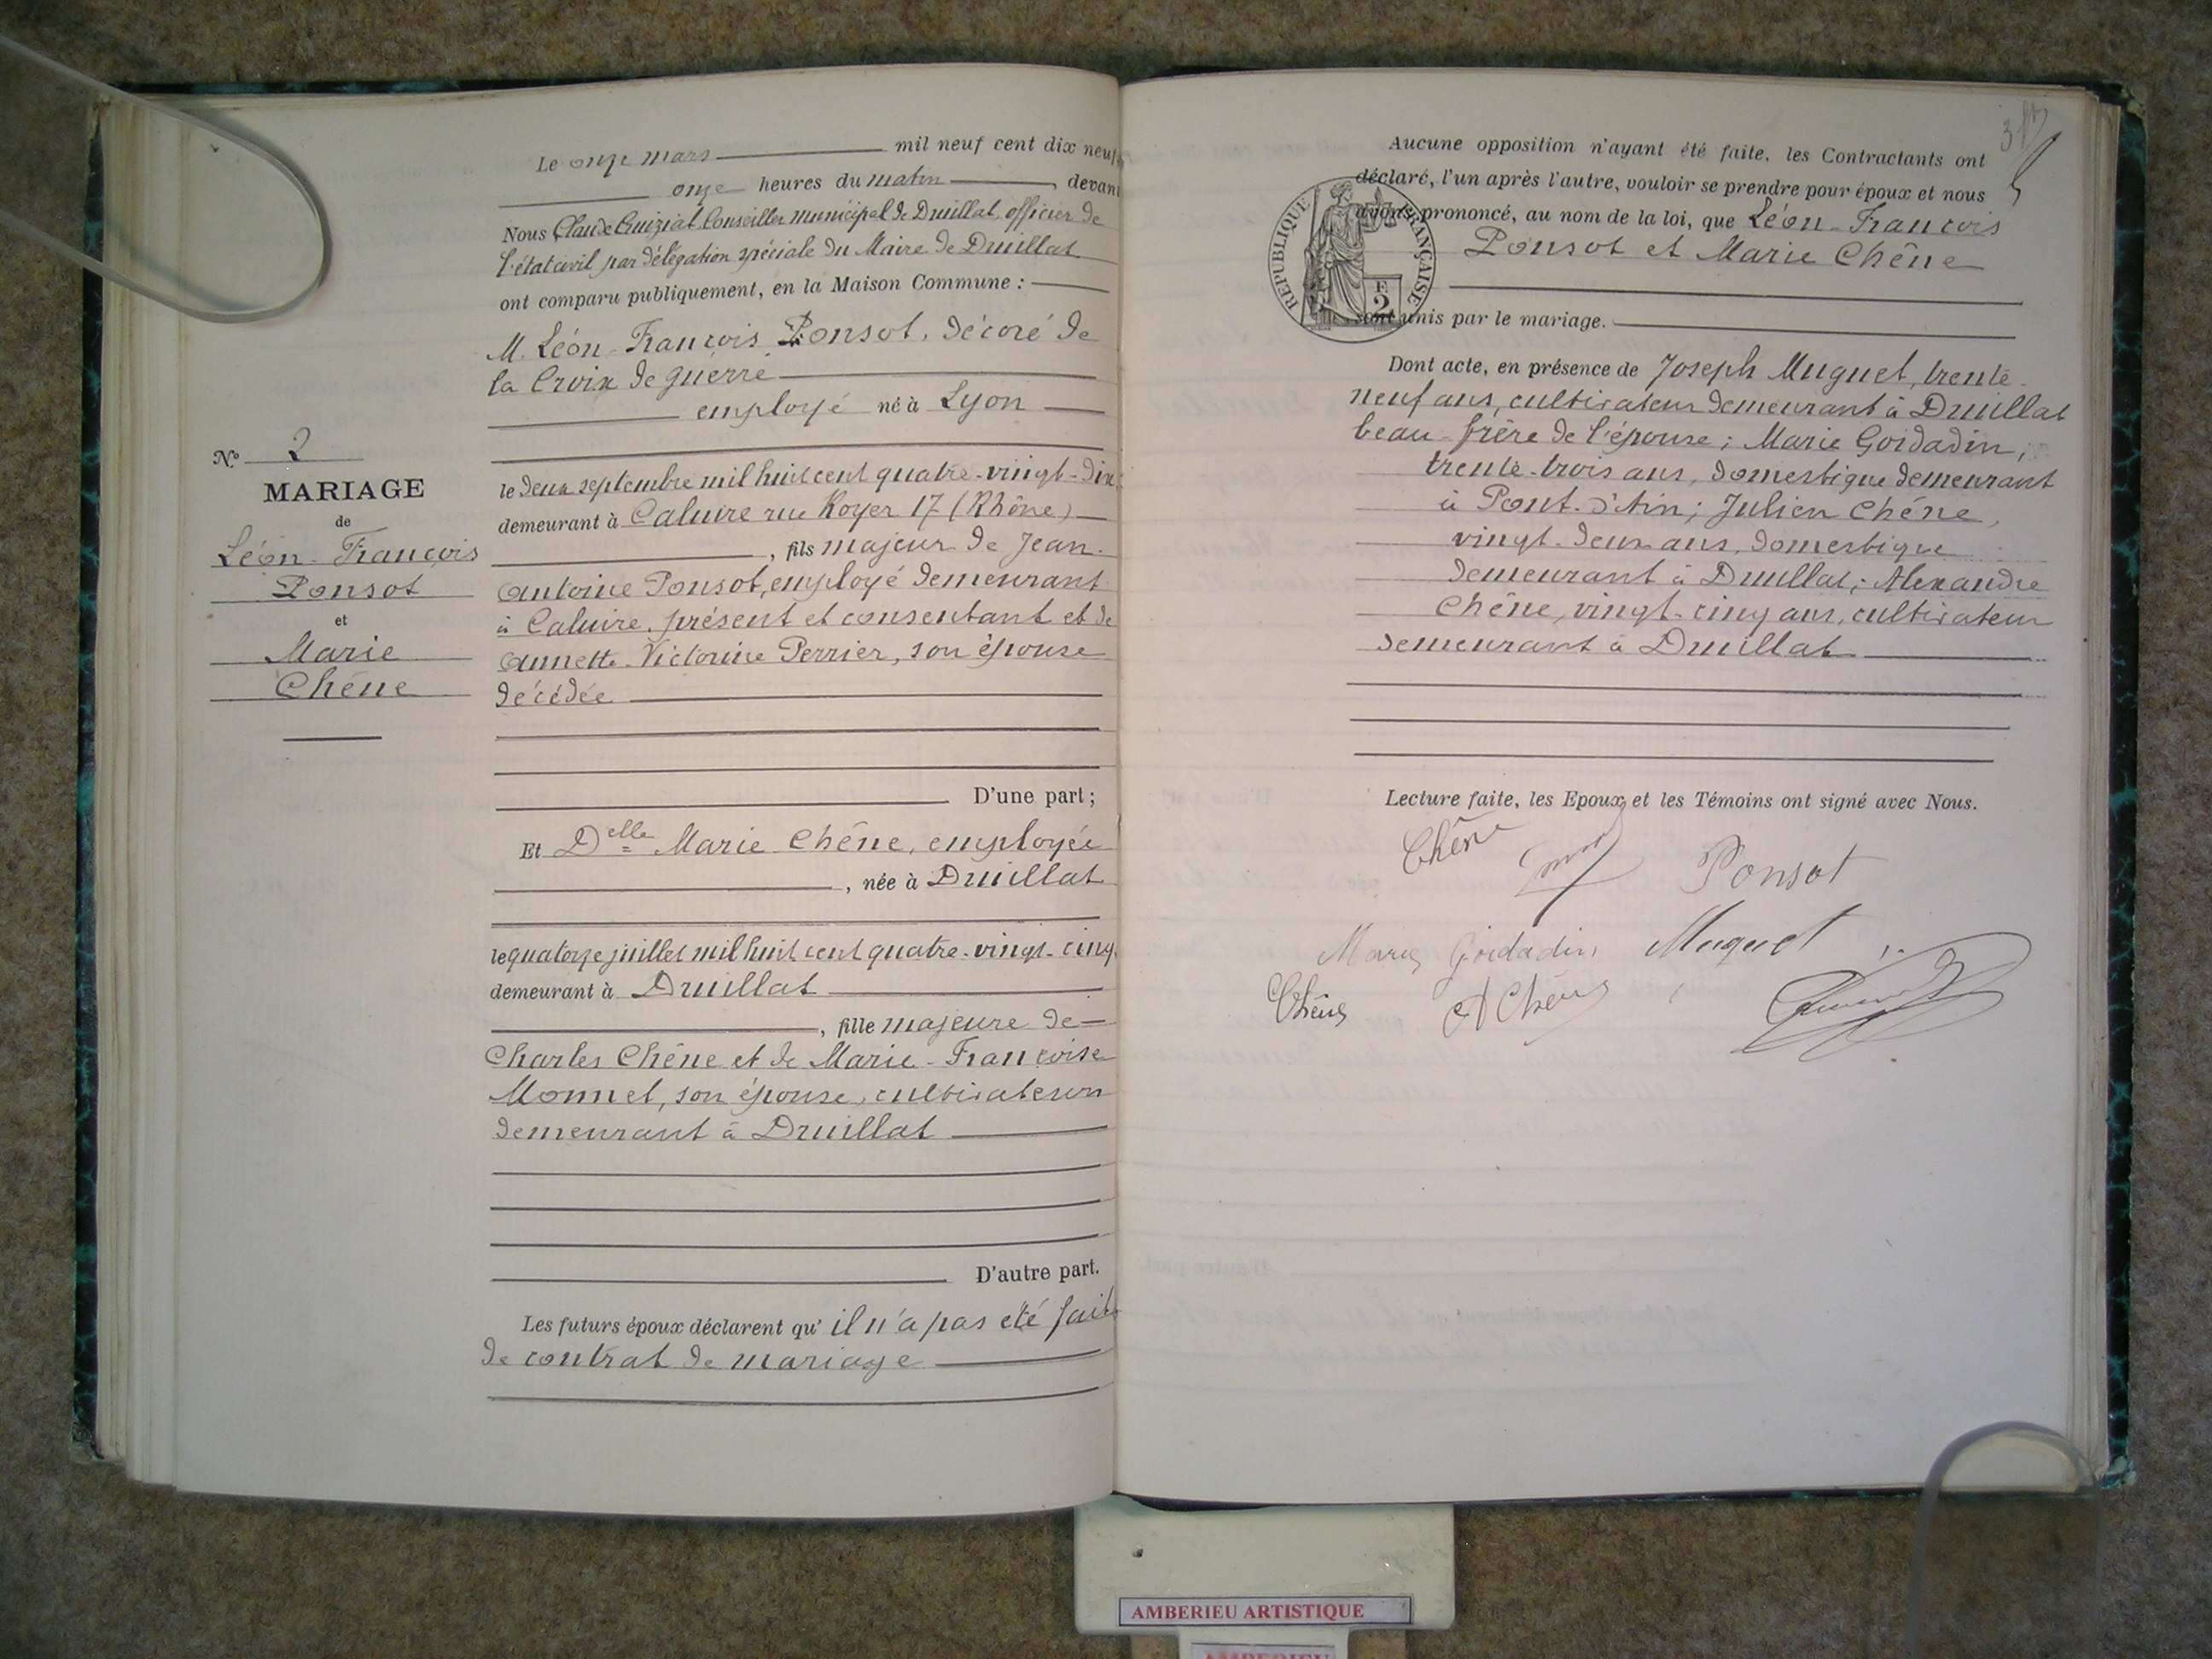 Le onze mars mil neuf cent dix neuf
onze heures du matin, devant
Nous Claude Cruiziat Conseiller municipal de Druillat, officier de
l'état civil par délégation spéciale du Maire de Druillat
ont comparu publiquement, en la Maison Commune :
M. Léon-François Ponsot, décoré de
la Croix de guerre
employé né à Lyon
le deux septembre mil huit cent quatre-vingt-dix
demeurant à Caluire rue Royer 17 (Rhône)
, fils majeur de Jean-
Antoine Ponsot, employé demeurant
à Caluire, présent et consentant et de
Annette-Victorine Perrier, son épouse
décédée
D'une part ;
Et Delle Marie Chêne, employée
, née à Druillat
le quatorze juillet mil huit cent quatre-vingt-cinq,
demeurant à Druillat
, fille majeure de
Charles Chêne et de Marie-Françoise
Monnet, son épouse, cultivateurs
demeurant à Druillat
D'autre part.
Les futurs époux déclarent qu'il n'a pas été fait
de contrat de mariage
No 2
MARIAGE
de
Léon-François
Ponsot
et
Marie
Chêne
Aucune opposition n'ayant été faite, les Contractants ont
déclaré, l'un après l'autre, vouloir se prendre pour époux et nous
avons prononcé, au nom de la loi, que Léon-François
Ponsot et Marie Chêne
sont unis par le mariage.
RÉPUBLIQUE FRANÇAISE
E
2
Dont acte, en présence de Joseph Muguet, trente-
neuf ans, cultivateur demeurant à Druillat
beau-frère de l'épouse ; Marie Goidadin,
trente-trois ans, domestique demeurant
à Pont-d'Ain ; Julien Chêne,
vingt-deux ans, domestique
demeurant à Druillat ; Alexandre
Chêne, vingt-cinq ans, cultivateur
demeurant à Druillat
Lecture faite, les Epoux et les Témoins ont signé avec Nous.
Chêne
Ponsot
Marie Goidadin Muguet
Chêne A Chêne
AMBERIEU ARTISTIQUE
AMBERIEU